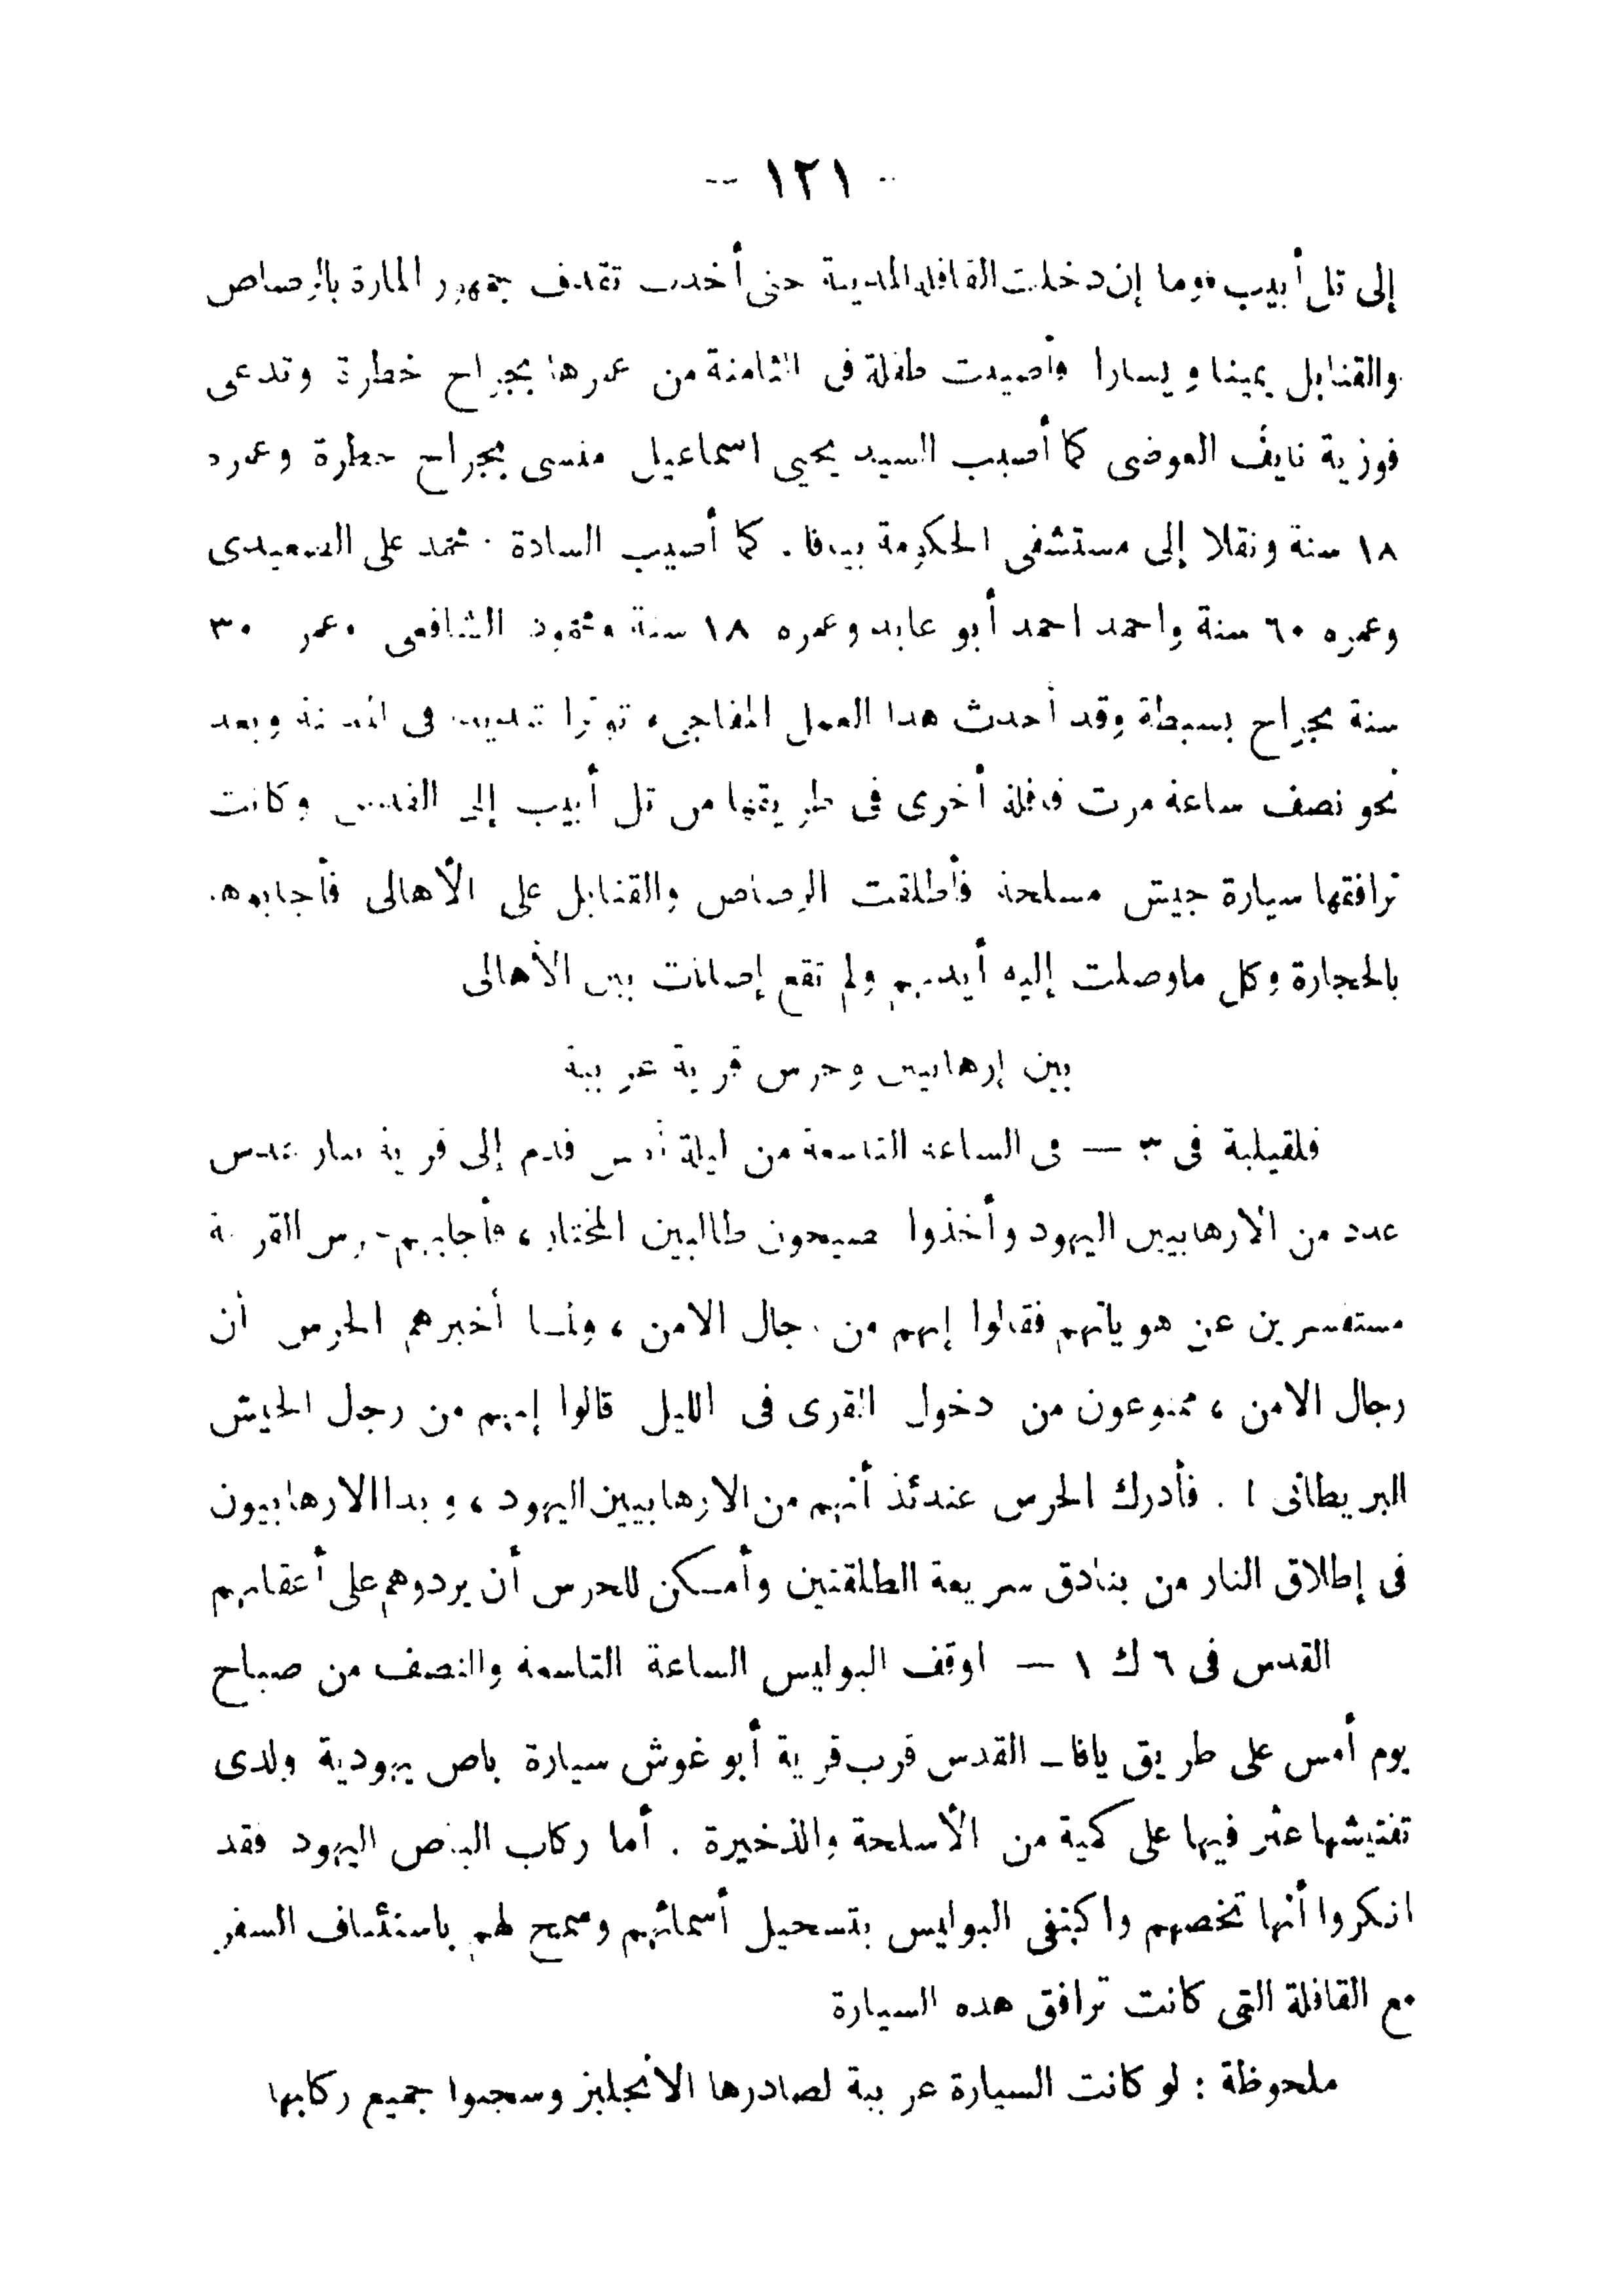 — ١٢١ —
إلى تل أبيب وما إن دخلت القافلة المدينة حتى أخذت تقذف جمهور المارة بالرصاص
والقنابل يمينا ويسارا وأصيبت طفلة فى الثامنة من عمرها بجراح خطرة وتدعى
فوزية نايف العوضى كما أصيب السيد يحيى اسماعيل منسى بجراح خطرة وعمره
١٨ سنة ونقلا إلى مستشفى الحكومة بيافا . كما أصيب السادة محمد على الصعيدى
وعمره ٦٠ سنة واحمد احمد أبو عابد وعمره ١٨ سنة ومحمود الشافعى وعمر ٣٠
سنة بجراح بسيطة وقد أحدث هذا العمل المفاجىء توترا فى المدينة وبعد
نحو نصف ساعة مرت قافلة أخرى فى طريقها من تل أبيب إلى القدس وكانت
ترافقها سيارة جيش مسلحة فأطلقت الرصاص والقنابل على الأهالى فأجابوها
بالحجارة وكل ماوصلت إليه أيديهم ولم تقع إصابات بين الأهالى
بين إرهابيين وحرس قرية عربية
قلقيلية فى ٣ — فى الساعة التاسعة من ليلة أمس قدم إلى قرية
عدد من الارهابيين اليهود وأخذوا يصيحون طالبين المختار ، فأجابهم حرس القرية
مستفسرين عن هوياتهم فقالوا إنهم من رجال الامن ، ولما أخبرهم الحرس أن
رجال الامن ، ممنوعون من دخول القرى فى الليل قالوا إنهم من رجل الجيش
البريطانى ! . فأدرك الحرس عندئذ أنهم من الارهابيين اليهود ، وبدا الارهابيون
فى إطلاق النار من بنادق سريعة الطلقتين وأمكن للحرس أن يردوهم على أعقابهم
القدس فى ٦ ك ١ — اوقف البوليس الساعة التاسعة والنصف من صباح
يوم أمس على طريق يافا ـ القدس قرب قرية أبو غوش سيارة باص يهودية ولدى
تفتيشها عثر فيها على كمية من الأسلحة والذخيرة . أما ركاب الباص اليهود فقد
انكروا أنها تخصهم واكتفى البوليس بتسجيل أسمائهم وسمح لهم باستئناف السفر
مع القافلة التى كانت ترافق هذه السيارة
ملحوظة : لو كانت السيارة عربية لصادرها الأنجليز وسجنوا جميع ركابها